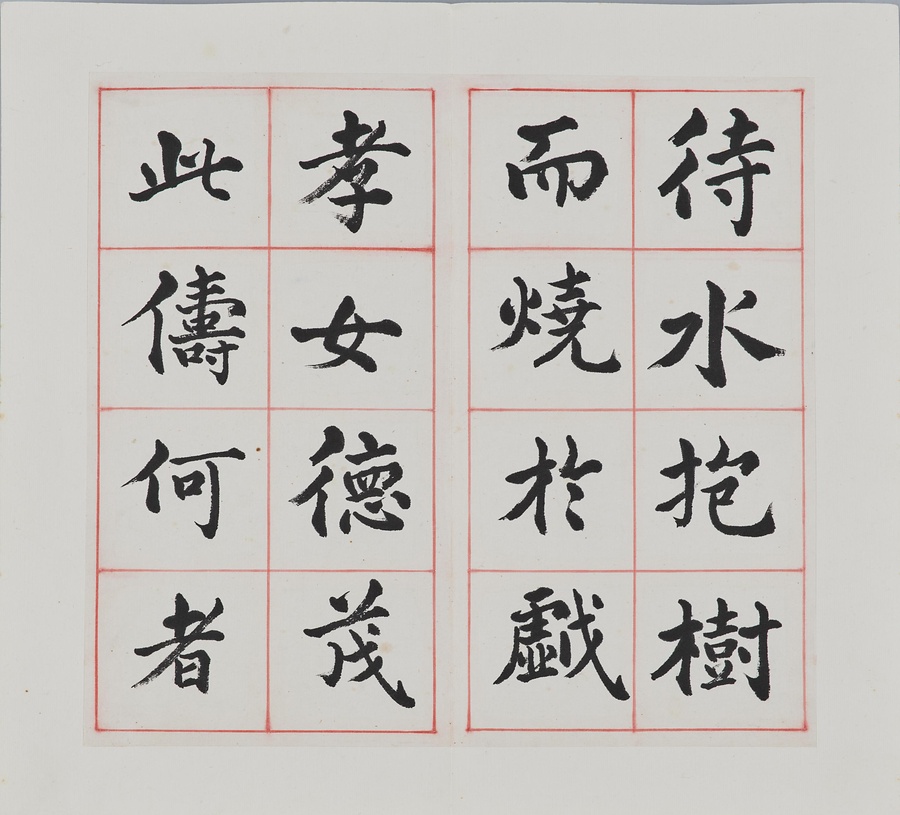 待水抱樹
而燒於戲
孝女德茂
此儔何者